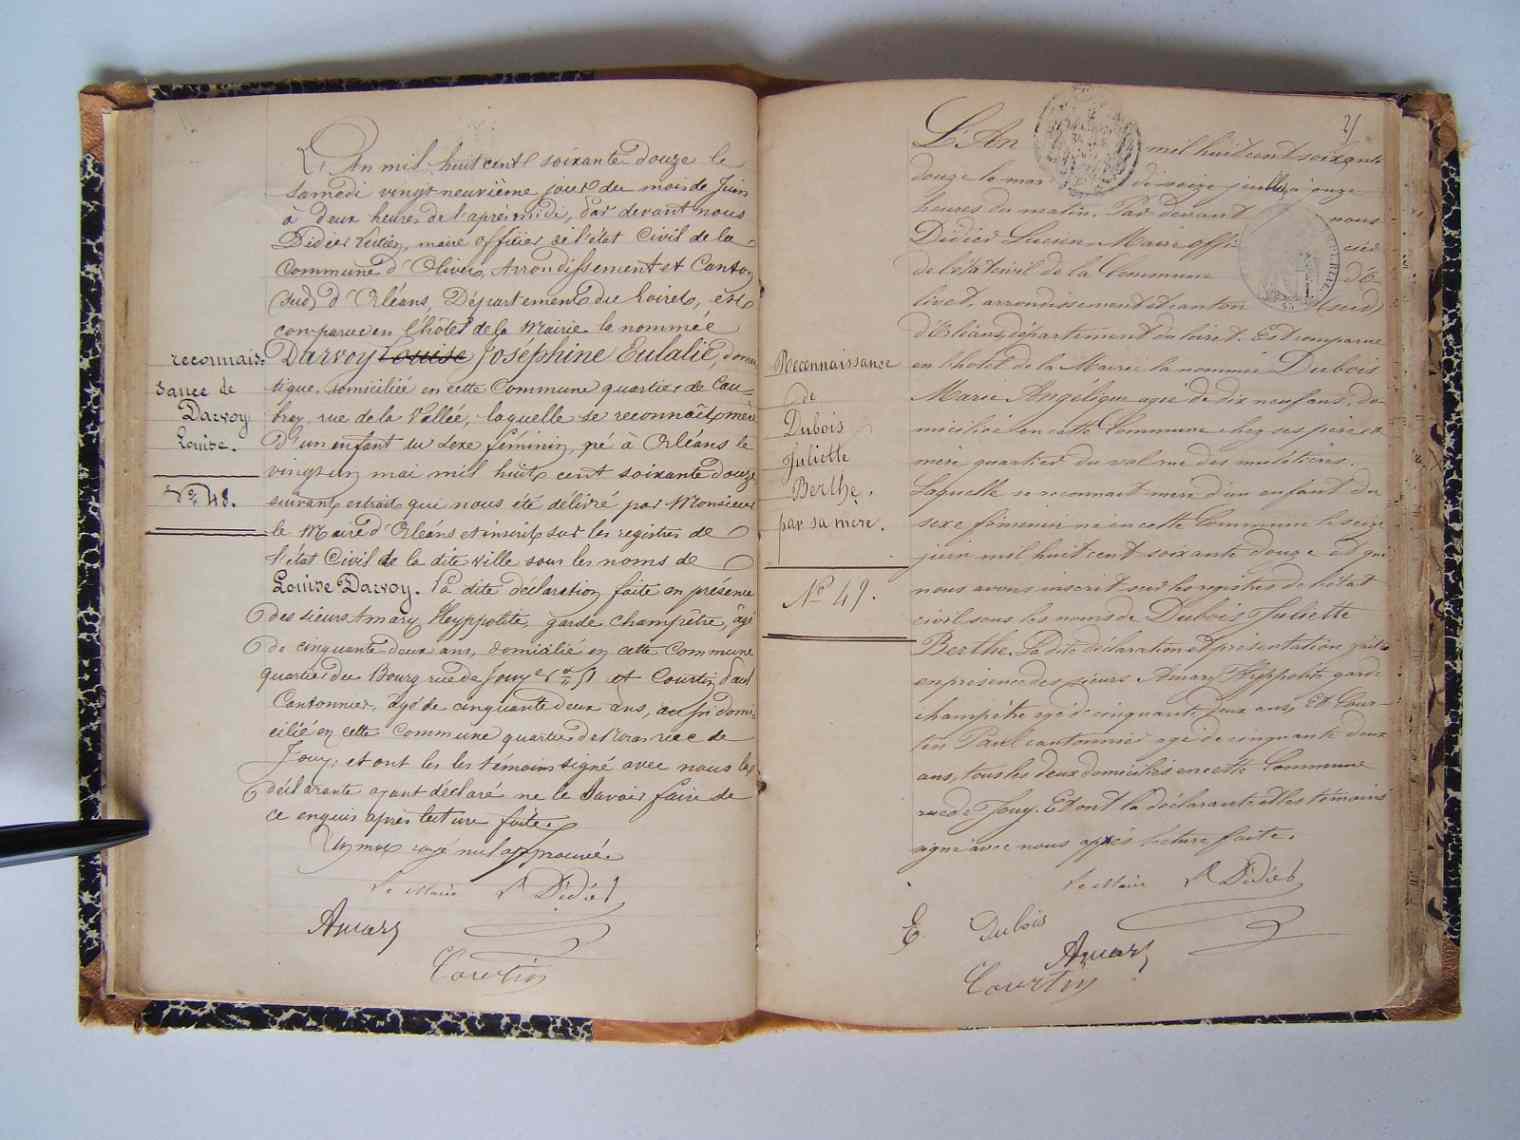 reconnais-
sance de
Darvoy
Louise.
No 48.
L'An mil huit cent soixante douze le
Samedi vingt neuvième jour du mois de Juin
à deux heures de l'après midi, Par devant nous
Didier Lucien, maire officier de l'état Civil de la
Commune d'Olivet, Arrondissement et Canton
(Sud) d'Orléans, Département du Loiret, est
comparue en l'hôtel de la Mairie la nommée
Darvoy Louise Joséphine Eulalie, domes-
tique, domiciliée en cette Commune quartier de Cau-
bray, rue de la Vallée, laquelle se reconnaît mère
d'un enfant du sexe féminin, né à Orléans le
vingt un mai mil huit cent soixante douze
suivant extrait qui nous été délivré par Monsieur
le Maire d'Orléans et inscrit sur les registres de
l'état Civil de la dite ville sous les noms de
Louise Darvoy. La dite déclaration faite en présence
des sieurs Amary Hyppolite, garde champêtre, âgé
de cinquante deux ans, domicilié en cette Commune
quartier du Bourg rue de Jouy et Courtin Paul
Cantonnier, âgé de cinquante deux ans, aussi domi-
cilié en cette Commune quartier de rue de
Jouy, et ont les les témoins signé avec nous la
déclarante ayant déclaré ne le Savoir faire de
ce enquis après lecture faite.
Un mot rayé nul approuvé.
Le Maire L Didier
Amary
Courtin
21
Reconnaissance
de
Dubois
Juliette
Berthe.
par sa mère.
No 49.
L'An mil huit cent soixante
douze le mardi seize juillet à onze
heures du matin. Par devant nous
Didier Lucien Maire officier
de l'état civil de la Commune d'O-
livet, arrondissement et canton (sud)
d'Orléans, département du Loiret. Est comparue
en l'hôtel de la Mairie la nommée Dubois
Marie Angélique agée de dix neuf ans, do-
miciliée en cette Commune chez ses père et
mère quartier du val rue des
Laquelle se reconnait mère d'un enfant du
sexe féminin né en cette Commune le seize
juin mil huit cent soixante douze et que
nous avons inscrit sur les registres de l'état
civil sous les noms de Dubois Juliette
Berthe. La dite déclaration et présentation faite
en présence des sieurs Amary Hyppolite garde
champêtre agé de cinquante deux ans Et Cour-
tin Paul cantonnier agé de cinquante deux
ans, tous les deux domiciliés en cette Commune
rue de Jouy. Et ont la déclarante et les témoins
signé avec nous après lecture faite.
Le Maire L Didier
E Dubois
Amary
Courtin